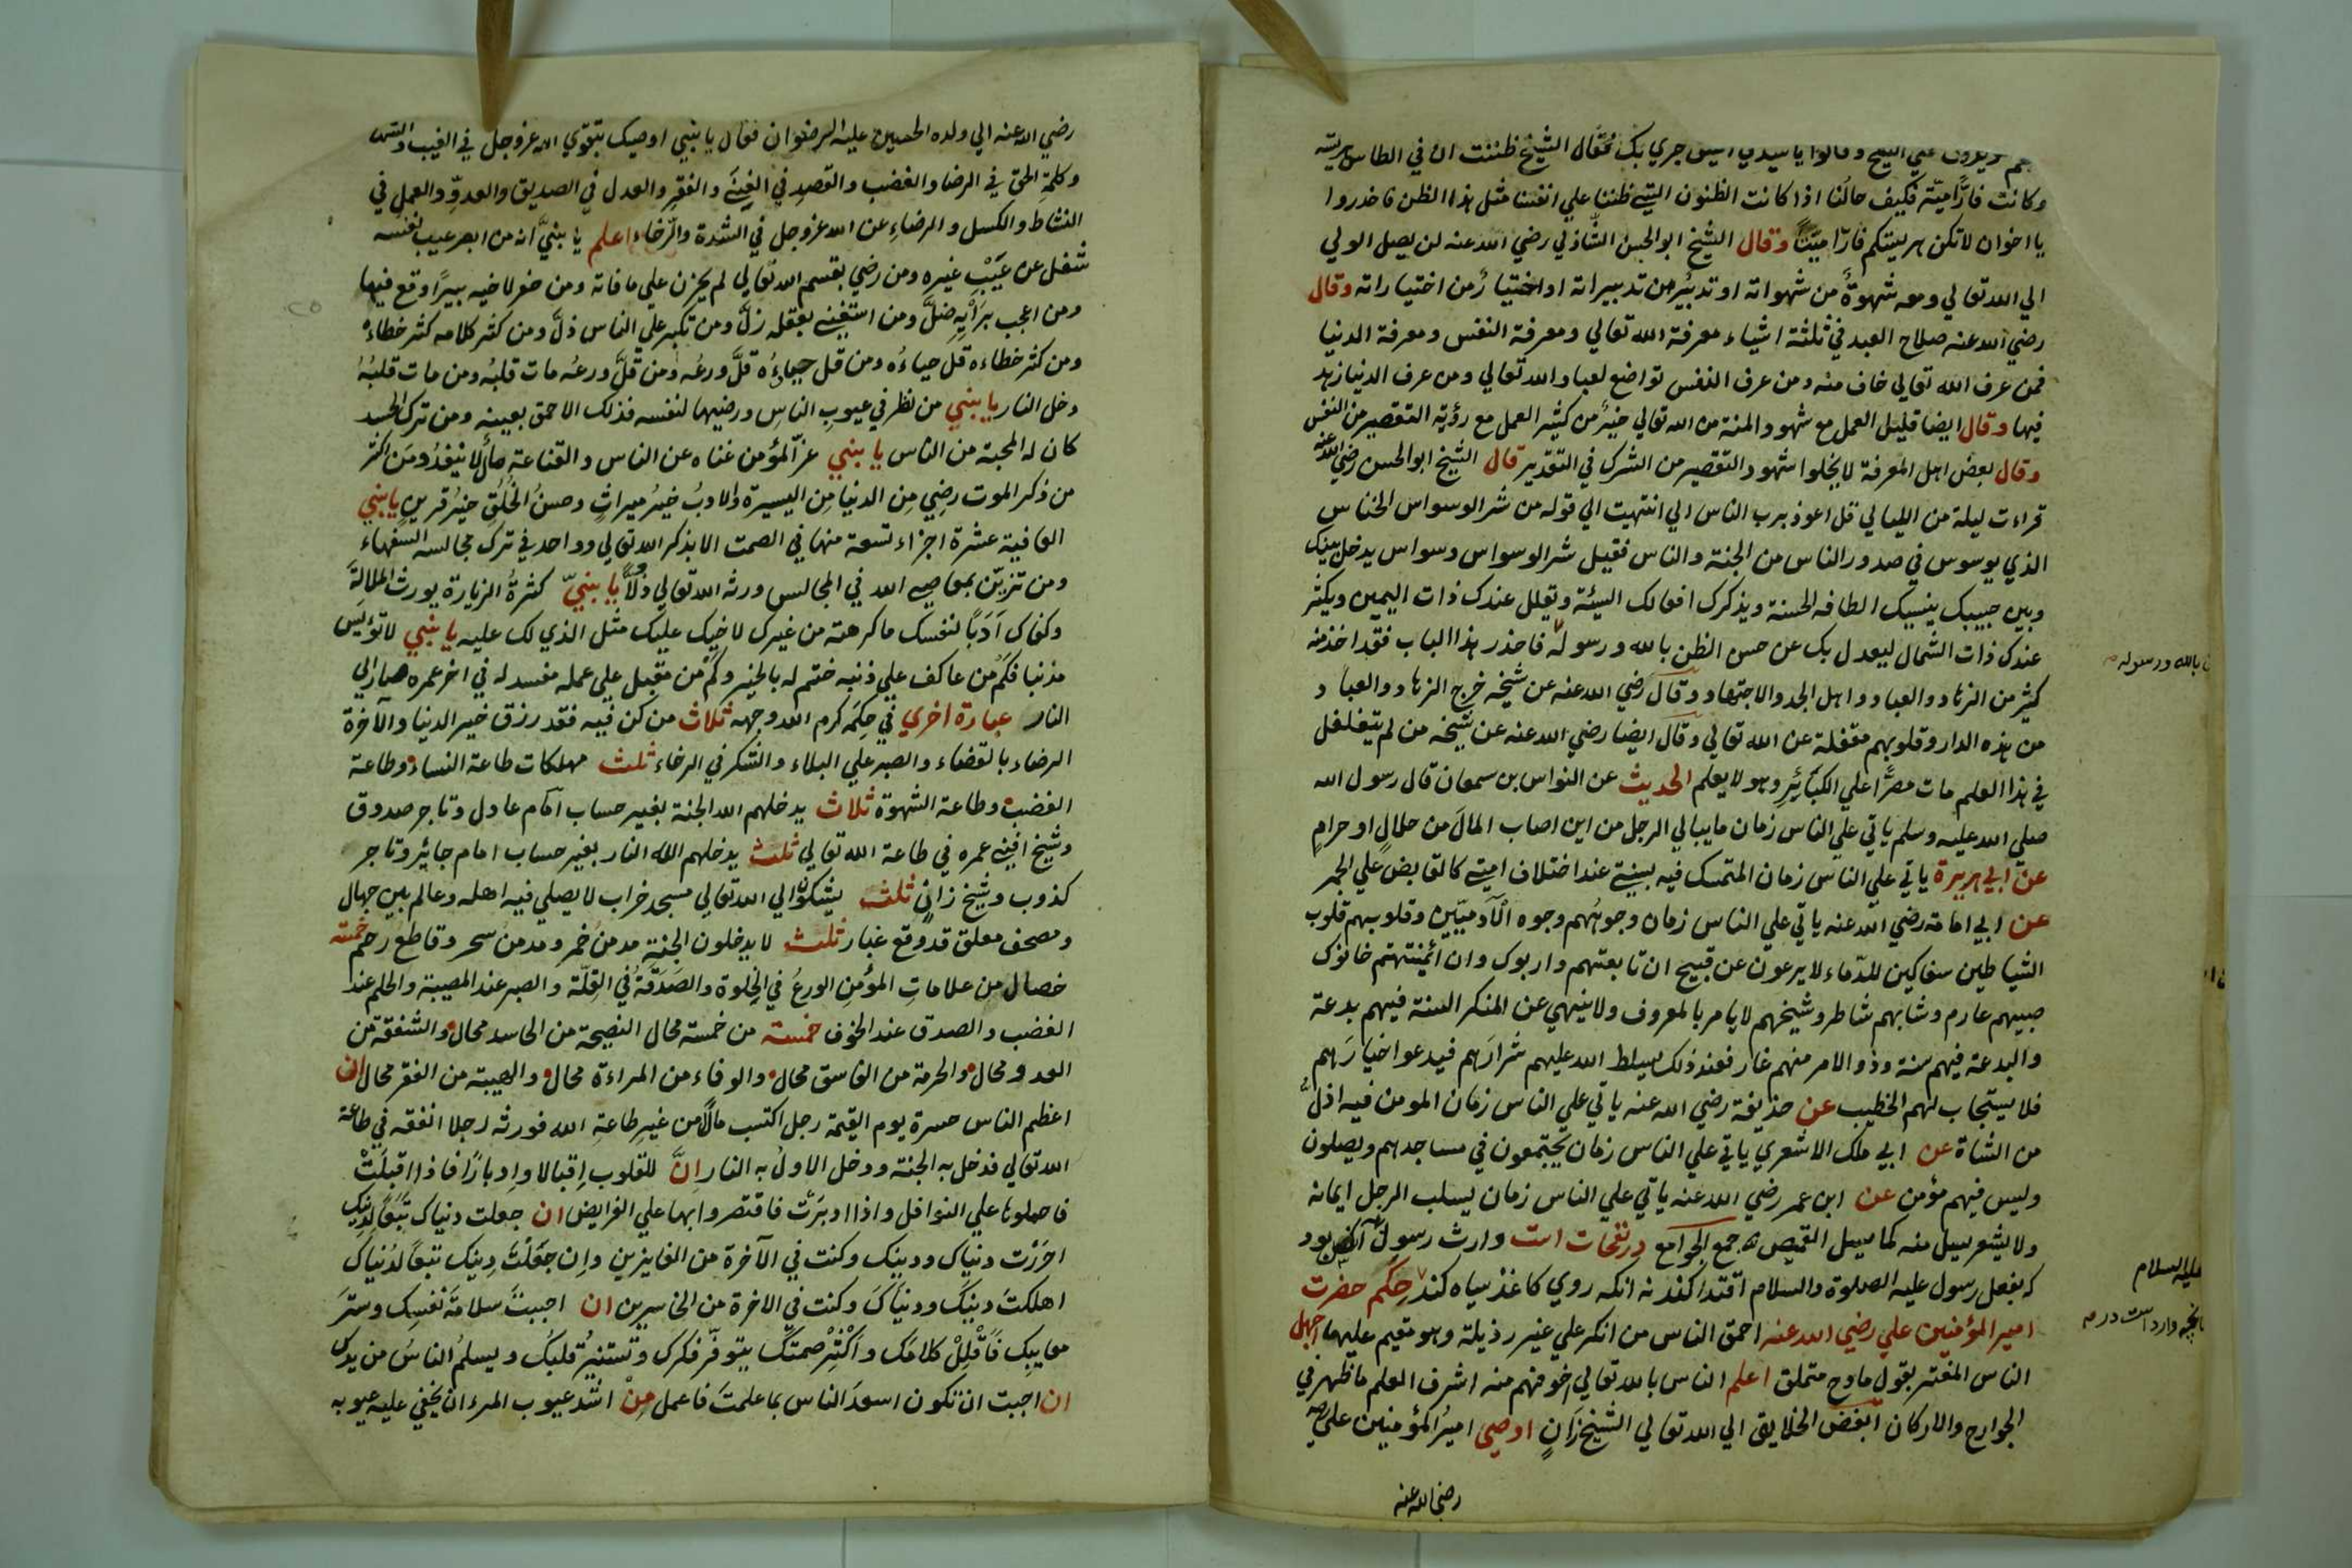 ويدورون علي الشيخ وقالوا يا سيدي ايش جري بك فقال الشيخ ظننت ان في الطاس هريسة
وكانت فارًا ميّتة فكيف حالنا اذا كانت الظنون التي ظننا علي انفسنا مثل هذا الظن فاحذروا
يا اخوان لا تكن هريستكم فارًا ميّتًا وقال الشيخ ابو الحسن الشاذلي رضي الله عنه لن يصل الولي
الي الله تعالي ومعه شهوةٌ من شهواته او تدبيرٌ من تدبيراته او اختيارٌ من اختياراته وقال
رضي الله عنه صلاح العبد في ثلثة اشياء معرفة الله تعالي ومعرفة النفس ومعرفة الدنيا
فمن عرف الله تعالي خاف منه ومن عرف النفس تواضع لعباد الله تعالي ومن عرف الدنيا زهد
فيها وقال ايضا قليل العمل مع شهود المنة من الله تعالي خيرٌ من كثير العمل مع رؤية التقصير من النفس
وقال بعض اهل المعرفة لا يخلوا شهود التقصير من الشرك في التقدير قال الشيخ ابو الحسن رضي الله عنه
قراءت ليلة من الليالي قل اعوذ برب الناس الي انتهيت الي قوله من شر الوسواس الخناس
الذي يوسوس في صدور الناس من الجنة والناس فقيل شر الوسواس وسواس يدخل بينك
وبين حبيبك ينسيك الطافه الحسنة ويذكرك افعالك السيئة وتقلل عندك ذات اليمين ويكثر
عندك ذات الشمال ليعدل بك عن حسن الظن بالله ورسوله فاحذر هذا الباب فقد اخذ منه
كثير من الزهاد والعباد واهل الجد والاجتهاد وقال رضي الله عنه عن شيخه خرج الزهاد والعباد
من هذه الدار وقلوبهم مقفلة عن الله تعالي وقال ايضا رضي الله عنه عن شيخه من لم يتغلغل
في هذا العلم مات مصرًّا علي الكبائير وهو لا يعلم الحديث عن النواس بن سمعان قال رسول الله
صلي الله عليه وسلم ياتي علي الناس زمان ما يبالي الرجل من اين اصاب المال من حلالٍ او حرامٍ
عن ابي هريرة ياتي علي الناس زمان المتمسك فيه بسنتي عند اختلاف امتي كالقابض علي الجمر
عن ابي امامة رضي الله عنه ياتي علي الناس زمان وجوههم وجوه الآدميّين وقلوبهم قلوب
الشياطين سفاكين للدّماء لا يرعون عن قبيح ان تابعتهم واربوك وان ائمنتهم خانوك
صبيهم عارم وشابهم شاطر وشيخهم لا يامر بالمعروف ولا ينهي عن المنكر السنة فيهم بدعة
والبدعة فيهم سنة وذو الامر منهم غار فعند ذلك يسلط الله عليهم شرارَهم فيدعوا خيارَهم
فلا يستجاب لهم الخطيب عن حذيفة رضي الله عنه ياتي علي الناس زمان المومن فيه اذلُّ
من الشاة عن ابي ملك الاشعري ياتي علي الناس زمان يجتمعون في مساجدهم ويصلون
وليس فيهم مؤمن عن ابن عمر رضي الله عنه ياتي علي الناس زمان يسلب الرجل ايمانه
ولا يشعر يسل منه كما يسل القميص جمع الجوامع در نفحات است وارث رسول آنكس بود
كه بفعل رسول عليه الصلوة والسلام اقتدا كند نه انكه روي كاغذ سياه كند حِكَم حضرت
امير المؤمنين علي رضي الله عنه احمق الناس من انكر علي غير رذيلة وهو مقيم عليها اجهل
الناس المغتر بقول مادح متملق اعلم الناس بالله تعالي اخوفهم منه اشرف العلم ما ظهر في
الجوارح والاركان ابغض الخلايق الي الله تعالي الشيخ زانٍ اوصي اميرُ المؤمنين علي
رضي الله عنه
بالله ورسوله
عليه السلام
رضي الله عنه الي ولده الحسين عليه الرضوان فقال يا بنيي اوصيك بتقوي الله عزوجل في الغيب والشهادة
وكلمةِ الحق في الرضا والغضب والقصدِ في الغِنَي والفقرِ والعدل في الصديق والعدوّ والعمل في
النشاط والكسل والرضاءِ عن الله عزوجل في الشدة والرّخاء اعلم يا بنيَّ انه من ابصر عيب نفسه
شغل عن عيْب غيره ومن رضي بقسم الله تعالي لم يحزن علي ما فاته ومن حفر لاخيه بيرًا وقع فيها
ومن اعجب برَأيِه ضلَّ ومن استغني بعقله زلَّ ومن تكبر علي الناس ذلَّ ومن كثر كلامه كثر خطاءه
ومن كثر خطاءه قل حياءُه ومن قل حياءُه قلَّ ورعُه ومن قلَّ ورعُه مات قلبُه ومن مات قلبُهُ
دخل النار يا بنيي من نظر في عيوبِ الناسِ ورضيها لنفسه فذلك الاحمق بعينه ومن ترك الحسد
كان له المحبة من الناس يا بنيي عزّ المؤمن غناه عن الناس والقناعة مالٌ لا ينفدُ ومَن اكثر
من ذكر الموت رضِي من الدنيا مِن اليسيرة والادبُ خيرُ ميراثٍ وحسنُ الخُلُقِ خيرُ قرينٍ يا بنيي
العافية عشرة اجزاء تسعة منها في الصمت الا بذكر الله تعالي وواحد في ترك مجالسه السفهاء
ومن تزيّن بمعاصي الله في المجالس ورثه الله تعالي ذلًّا يا بنيّ كثرةُ الزيارة يورث الملالةَ
وكفاك اَدَبًا لنفسك ما كرهته من غيرك لاخيك عليك مثل الذي لك عليه يا بنيي لا تؤيَس
مذنبا فكَمْ من عاكف علي ذنبه ختم له بالخير وكمْ من مقبل علي عمله مفسد له في اخر عمره صار الي
النار عبارة اخري في حِكَمه كرم الله وجهه ثلاث من كن فيه فقد رزق خير الدنيا والآخرة
الرضاء بالقضاء والصبر علي البلاء والشكر في الرخاء ثلث مهلكات طاعة النساء وطاعة
الغضب وطاعة الشهوة ثلاث يدخلهم الله الجنة بغير حساب امام عادل وتاجر صدوق
وشيخ افني عمره في طاعة الله تعالي ثلث يدخلهم الله النار بغير حساب امام جائير وتاجر
كذوب وشيخ زانٍ ثلث يشكون الي الله تعالي مسجد خراب لا يصلي فيه اهله وعالم بين جهال
ومصحف معلق قد وقع غبار ثلث لا يدخلون الجنةِ مدمنُ خمر ومدمن سحر وقاطع رحم خمسة
خصال من علاماتِ المؤمنِ الورعُ في الخِلوة والصَدَقةُ في القِلّة والصبر عند المصيبة والحلم عند
الغضب والصدق عند الخوف خمسة من خمسة محال النصيحة من الحاسد محال والشفقة من
العدو محال والحرمة من الفاسق محال والوفاء من المراءة محال والهيبة من الفقر محال ان
اعظم الناس حسرة يوم القيمة رجل اكتسب مالاً من غير طاعةِ الله فورثه رجلا انفقه في طاعة
الله تعالي فدخل به الجنة ودخل الاولُ به النار اِنَّ للقلوب اِقبالا واِدبارًا فاذا اقبلَتْ
فاحملوها علي النوافل واذا ادبرَتْ فاقتصروا بها علي الفرايض ان جعلت دنياك تبَعًا لدينِك
احرَزْت دنياك ودينك وكنت في الآخرة من الفايزين واِن جَعَلْتَ دِينك تبعًا لدُنياكَ
اهلكتَ دينكَ ودنياكَ وكنت في الاخرة من الخاسرين ان احببتَ سلامةَ نفسِك وسترَ
معايبك فَاَقْلِلْ كلامَك واكْثِرْ صمتكَ يتوفّر فكرك وتستنيرُ قلبُك ويسلمُ الناسُ من يدك
ان احببت ان تكون اسعدَ الناس بما علمتَ فاعمل مِنْ اشد عيوب المرء ان يخفي عليه عيوبه